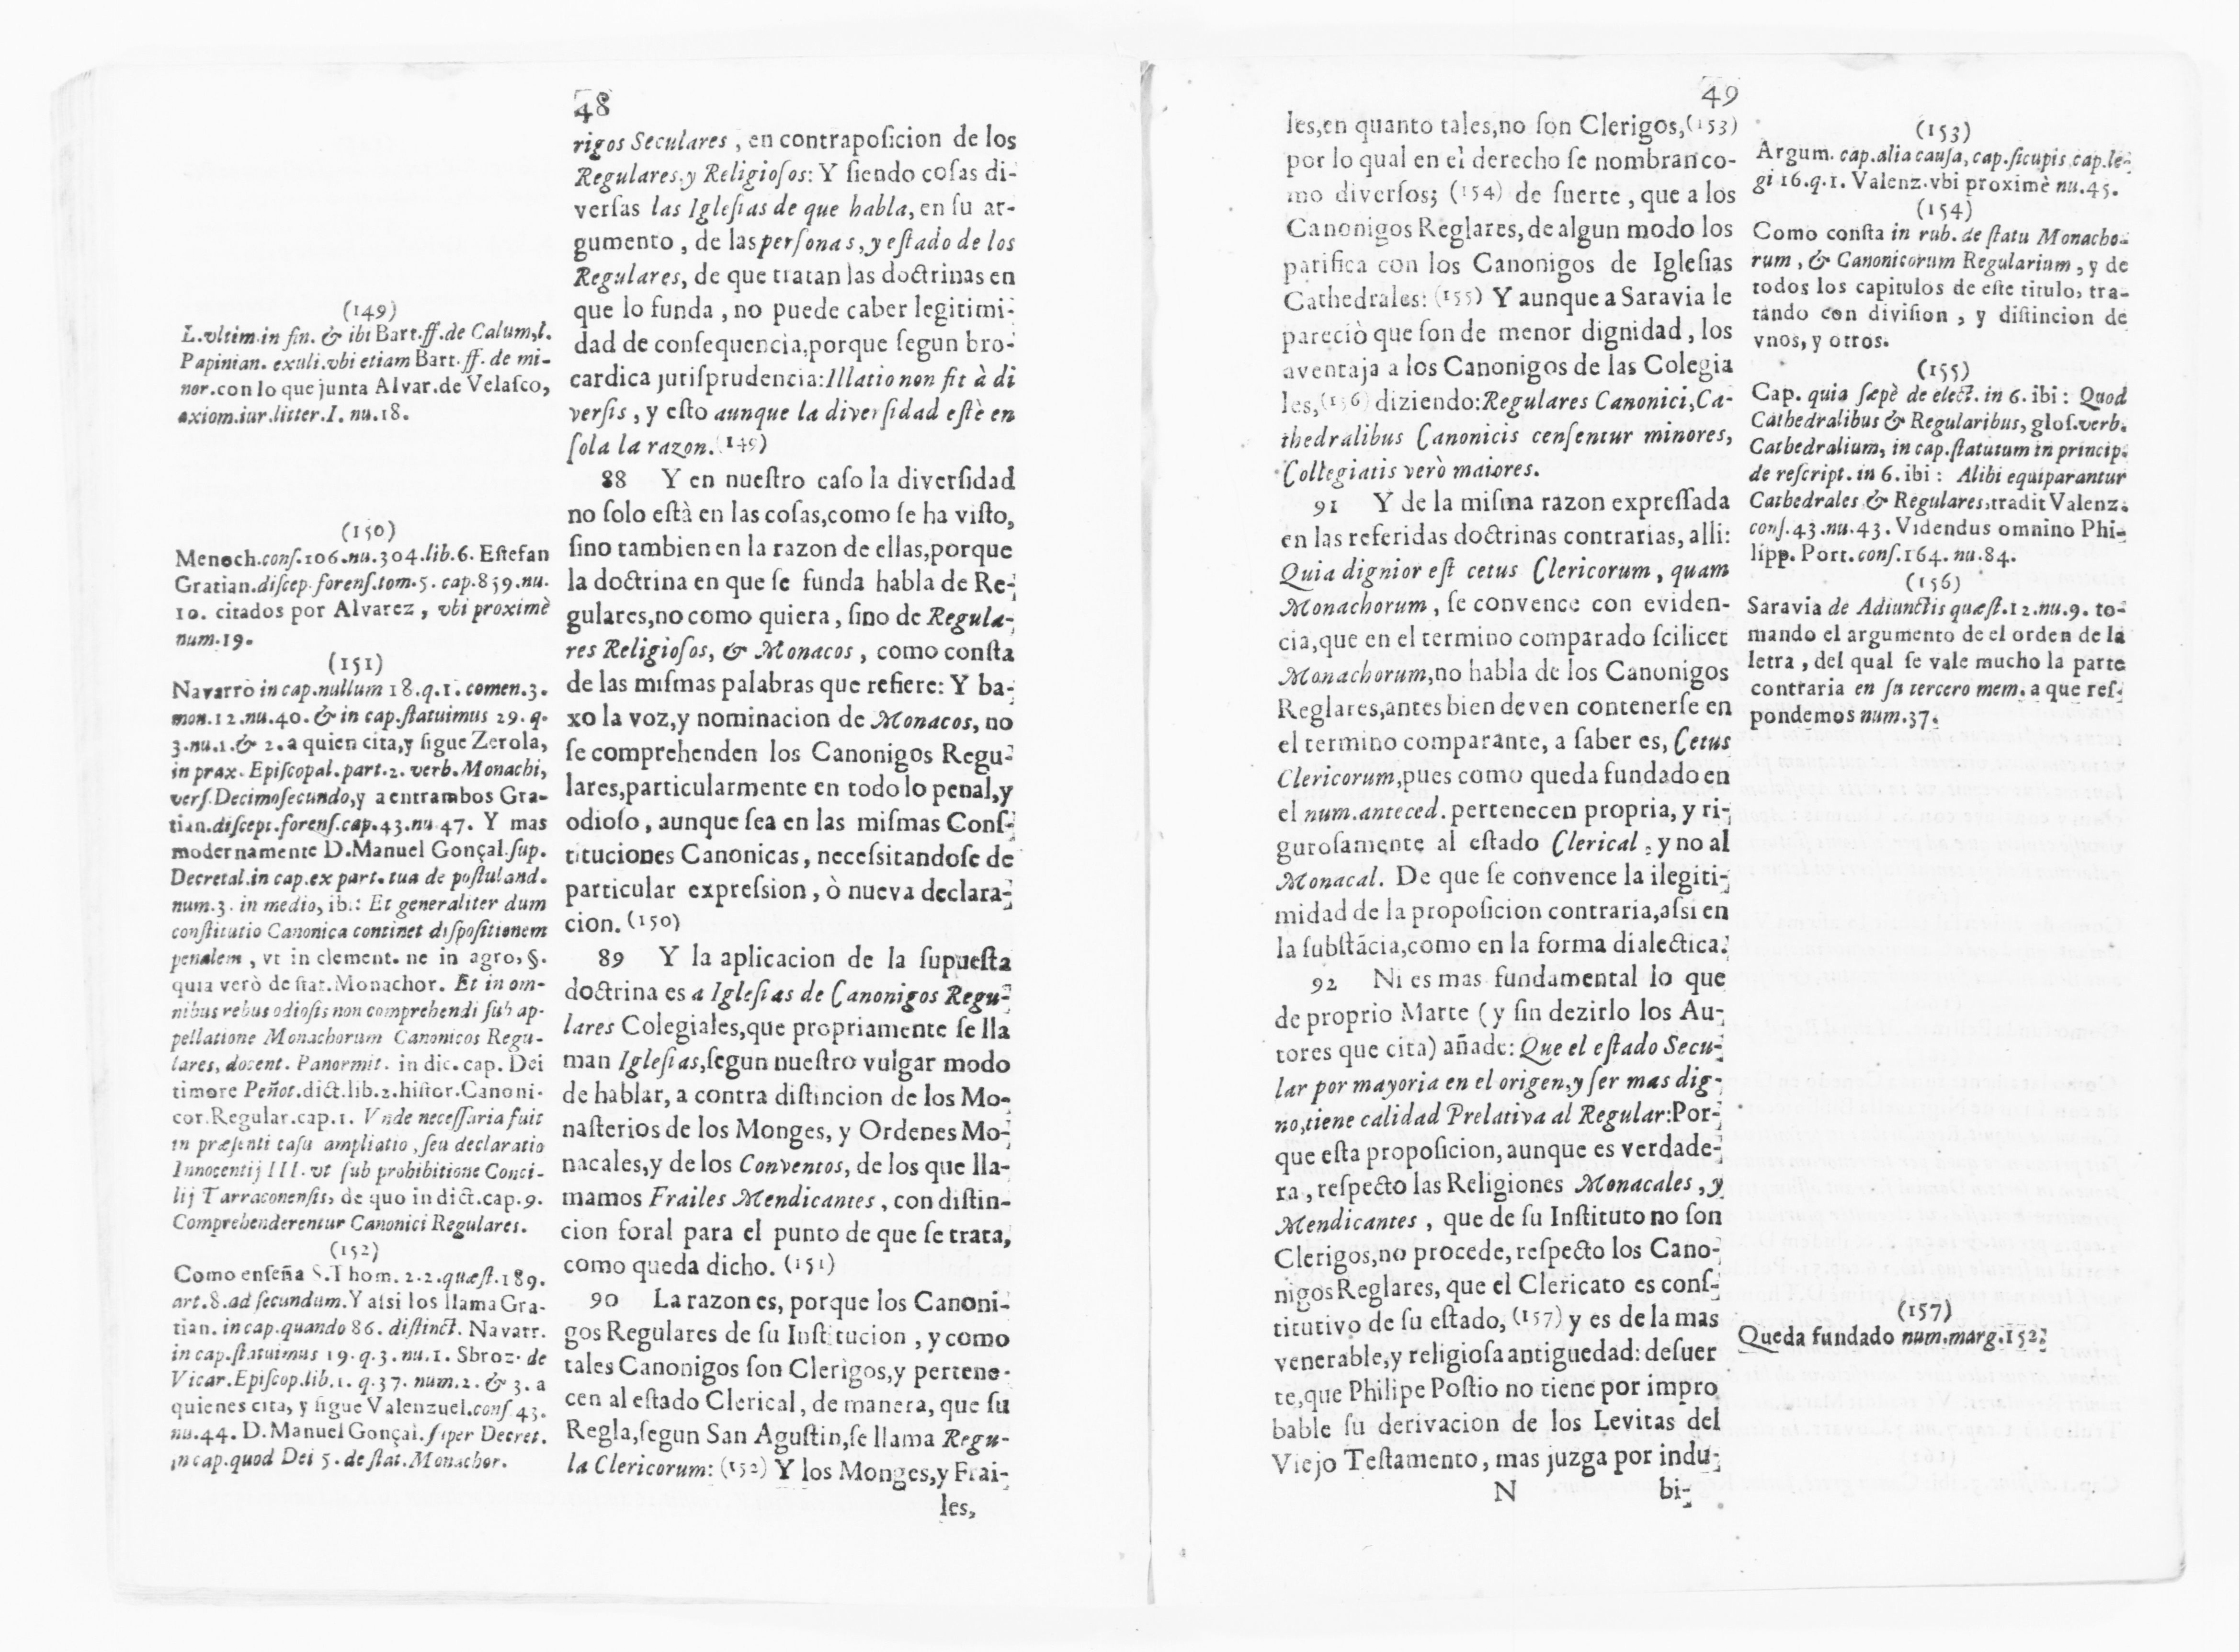 48
rigos Seculares, en contraposicion de los
Regulares, y Religiosos: Y siendo cosas di-
versas las Iglesias de que habla, en su ar-
gumento, de las personas, y estado de los
Regulares, de que tratan las doctrinas en
que lo funda, no puede caber legitimi-
dad de consequencia, porque segun bro-
cardica jurisprudencia: Illatio non fit à di
versis, y esto aunque la diversidad estè en
sola la razon. (149)
88 Y en nuestro caso la diversidad
no solo està en las cosas, como se ha visto,
sino tambien en la razon de ellas, porque
la doctrina en que se funda habla de Re-
gulares, no como quiera, sino de Regula-
res Religiosos, & Monacos, como consta
de las mismas palabras que refiere: Y ba-
xo la voz, y nominacion de Monacos, no
se comprehenden los Canonigos Regu-
lares, particularmente en todo lo penal, y
odioso, aunque sea en las mismas Cons-
tituciones Canonicas, necessitandose de
particular expression, ò nueva declara-
cion. (150)
89 Y la aplicacion de la supuesta
doctrina es a Iglesias de Canonigos Regu-
lares Colegiales, que propriamente se lla
man Iglesias, segun nuestro vulgar modo
de hablar, a contra distincion de los Mo-
nasterios de los Monges, y Ordenes Mo-
nacales, y de los Conventos, de los que lla-
mamos Frailes Mendicantes, con distin-
cion foral para el punto de que se trata,
como queda dicho. (151)
90 La razon es, porque los Canoni-
gos Regulares de su Institucion, y como
tales Canonigos son Clerigos, y pertene-
cen al estado Clerical, de manera, que su
Regla, segun San Agustin, se llama Regu-
la Clericorum: (152) Y los Monges, y Frai-
les,
(149)
L. vltim. in fin. & ibi Bart. ff. de Calum, l.
Papinian. exuli. vbi etiam Bart. ff. de mi-
nor. con lo que junta Alvar. de Velasco,
axiom. iur. litter. I. nu. 18.
(150)
Menoch. cons. 106. nu. 304. lib. 6. Estefan
Gratian. discep. forens. tom. 5. cap. 859. nu.
10. citados por Alvarez, vbi proximè
num. 19.
(151)
Navarro in cap. nullum 18. q. 1. comen. 3.
mon. 12. nu. 40. & in cap. statuimus 29. q.
3. nu. 1. & 2. a quien cita, y sigue Zerola,
in prax. Episcopal. part. 2. verb. Monachi,
vers. Decimosecundo, y a entrambos Gra-
tian. discept. forens. cap. 43. nu 47. Y mas
modernamente D. Manuel Gonçal. sup.
Decretal. in cap. ex part. tua de postuland.
num. 3. in medio, ib.: Et generaliter dum
constitutio Canonica continet dispositionem
penalem, vt in clement. ne in agro, §.
quia verò de stat. Monachor. Et in om-
nibus rebus odiosis non comprehendi sub ap-
pellatione Monachorum Canonicos Regu-
lares, docent. Panormit. in dic. cap. Dei
timore Peñot. dict. lib. 2. histor. Canoni-
cor. Regular. cap. 1. Vnde necessaria fuit
in præsenti casu ampliatio, seu declaratio
Innocentij III. vt sub prohibitione Conci-
lij Tarraconensis, de quo in dict. cap. 9.
Comprehenderentur Canonici Regulares.
(152)
Como enseña S. Thom. 2. 2. quæst. 189.
art. 8. ad secundum. Y assi los llama Gra-
tian. in cap. quando 86. distinct. Navarr.
in cap. statuimus 19. q. 3. nu. 1. Sbroz. de
Vicar. Episcop. lib. 1. q. 37. num. 2. & 3. a
quienes cita, y sigue Valenzuel. cons 43.
nu. 44. D. Manuel Gonçal. super Decret.
in cap. quod Dei 5. de stat. Monachor.
49
les, en quanto tales, no son Clerigos, (153)
por lo qual en el derecho se nombran co-
mo diversos; (154) de suerte, que a los
Canonigos Reglares, de algun modo los
parifica con los Canonigos de Iglesias
Cathedrales: (155) Y aunque a Saravia le
pareciò que son de menor dignidad, los
aventaja a los Canonigos de las Colegia
les, (156) diziendo: Regulares Canonici, Ca-
thedralibus Canonicis censentur minores,
Collegiatis verò maiores.
91 Y de la misma razon expressada
en las referidas doctrinas contrarias, alli:
Quia dignior est cetus Clericorum, quam
Monachorum, se convence con eviden-
cia, que en el termino comparado scilicet
Monachorum, no habla de los Canonigos
Reglares, antes bien deven contenerse en
el termino comparante, a saber es, Cetus
Clericorum, pues como queda fundado en
el num. anteced. pertenecen propria, y ri-
gurosamente al estado Clerical, y no al
Monacal. De que se convence la ilegiti-
midad de la proposicion contraria, assi en
la substãcia, como en la forma dialectica.
92 Ni es mas fundamental lo que
de proprio Marte (y sin dezirlo los Au-
tores que cita) añade: Que el estado Secu-
lar por mayoria en el origen, y ser mas dig-
no, tiene calidad Prelativa al Regular: Por-
que esta proposicion, aunque es verdade-
ra, respecto las Religiones Monacales, y
Mendicantes, que de su Instituto no son
Clerigos, no procede, respecto los Cano-
nigos Reglares, que el Clericato es cons-
titutivo de su estado, (157) y es de la mas
venerable, y religiosa antiguedad: desuer
te, que Philipe Postio no tiene por impro
bable su derivacion de los Levitas del
Viejo Testamento, mas juzga por indu-
N bi-
(153)
Argum. cap. alia causa, cap. sicupis cap. le-
gi 16. q. 1. Valenz. vbi proximè nu. 45.
(154)
Como consta in rub. de statu Monacho-
rum, & Canonicorum Regularium, y de
todos los capitulos de este titulo, tra-
tando con division, y distincion de
vnos, y otros.
(155)
Cap. quia sæpè de elect. in 6. ibi: Quod
Cathedralibus & Regularibus, glos. verb.
Cathedralium, in cap. statutum in princip.
de rescript. in 6. ibi: Alibi equiparantur
Cathedrales & Regulares, tradit Valenz.
cons. 43. nu. 43. Videndus omnino Phi-
lipp. Port. cons. 164. nu. 84.
(156)
Saravia de Adiunctis quæst. 12. nu. 9. to-
mando el argumento de el orden de la
letra, del qual se vale mucho la parte
contraria en su tercero mem. a que res-
pondemos num. 37.
(157)
Queda fundado num. marg. 152.